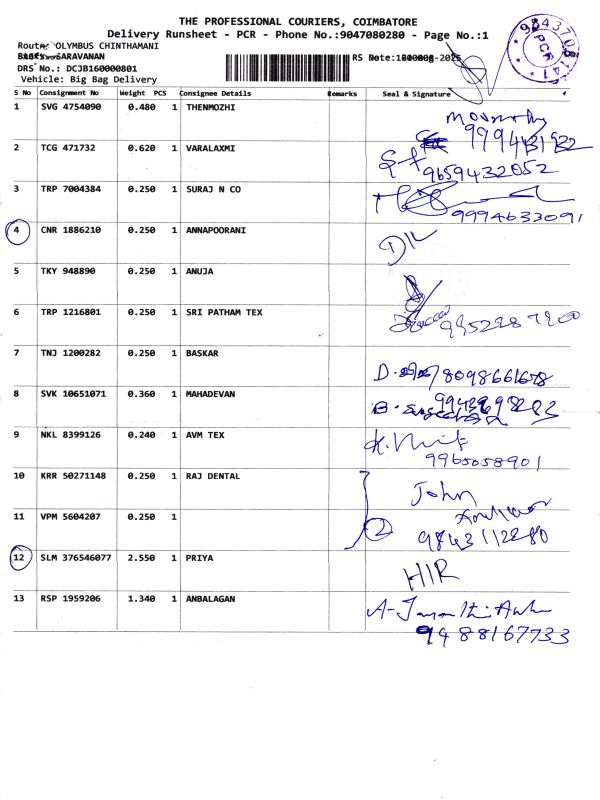 THE PROFESSIONAL COURIERS, COIMBATORE
Delivery Runsheet - PCR - Phone No.:9047080280 - Page No.:1
Route: OLYMBUS CHINTHAMANI
SARAVANAN
DRS No.: DCJB160000801
Vehicle: Big Bag Delivery
984370 8141
PCR
S No Consignment No Weight PCS Consignee Details Remarks Seal & Signature
1 SVG 4754090 0.480 1 THENMOZHI
2 TCG 471732 0.620 1 VARALAXMI
9659432052
3 TRP 7004384 0.250 1 SURAJ N CO
9994633091
4 CNR 1886210 0.250 1 ANNAPOORANI
D/L
5 TKY 948890 0.250 1 ANUJA
6 TRP 1216801 0.250 1 SRI PATHAM TEX
7 TNJ 1200282 0.250 1 BASKAR
8098661678
8 SVK 10651071 0.360 1 MAHADEVAN
9 NKL 8399126 0.240 1 AVM TEX
9965058901
10 KRR 50271148 0.250 1 RAJ DENTAL
John
11 VPM 5604207 0.250 1
2
9843112280
12 SLM 376546077 2.550 1 PRIYA
H/R
13 RSP 1959206 1.340 1 ANBALAGAN
9488167733